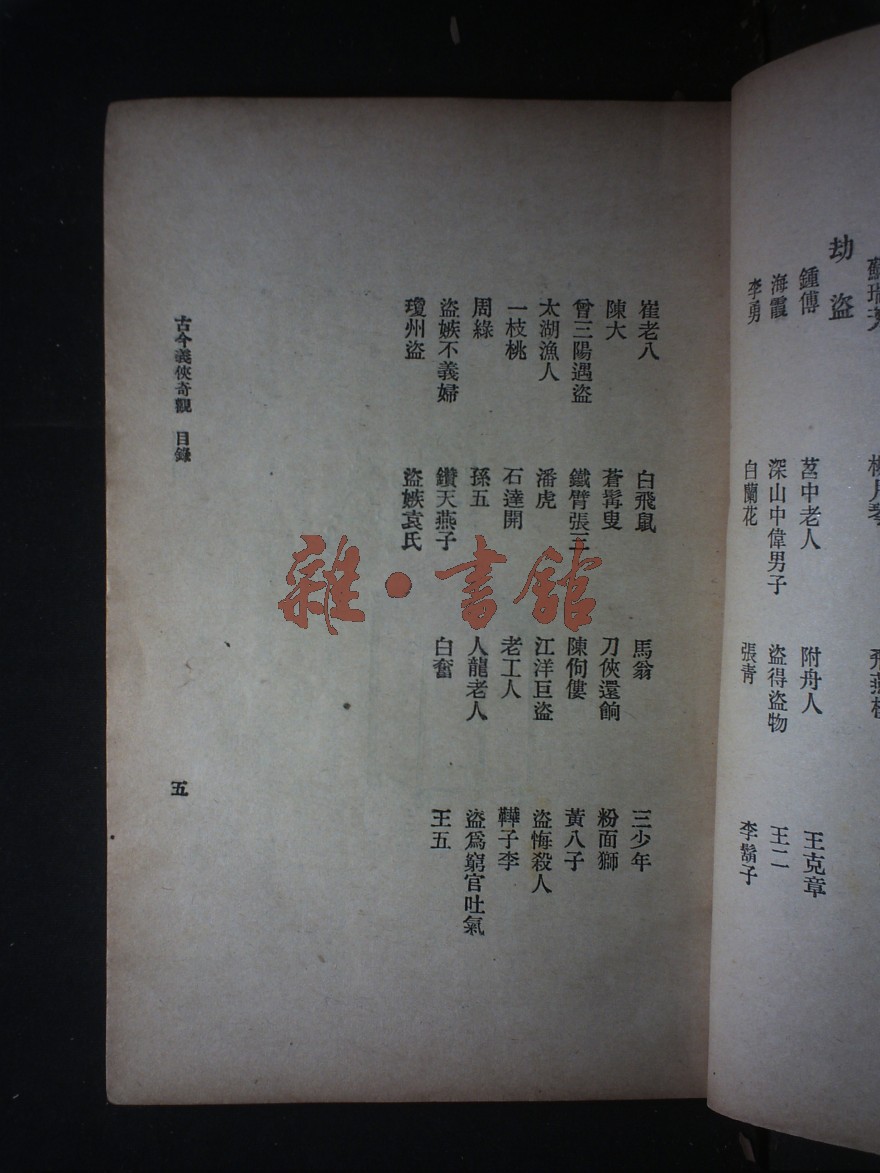 劫盜
鍾傅 莒中老人 附舟人 王克章
海霞 深山中偉男子 盜得盜物 王二
李勇 白蘭花 張青 李鬍子
崔老八 白飛鼠 馬翁 三少年
陳大 蒼髯叟 刀俠還餉 粉面獅
曾三陽遇盜 鐵臂張三 陳佝僂 黃八子
太湖漁人 潘虎 江洋巨盜 盜悔殺人
一枝桃 石達開 老工人 鞾子李
周綠 孫五 人龍老人 盜爲窮官吐氣
盜嫉不義婦 鑽天燕子 白奮 王五
瓊州盜 盜嫉袁氏
古今義俠奇觀 目錄 五
雜·書館